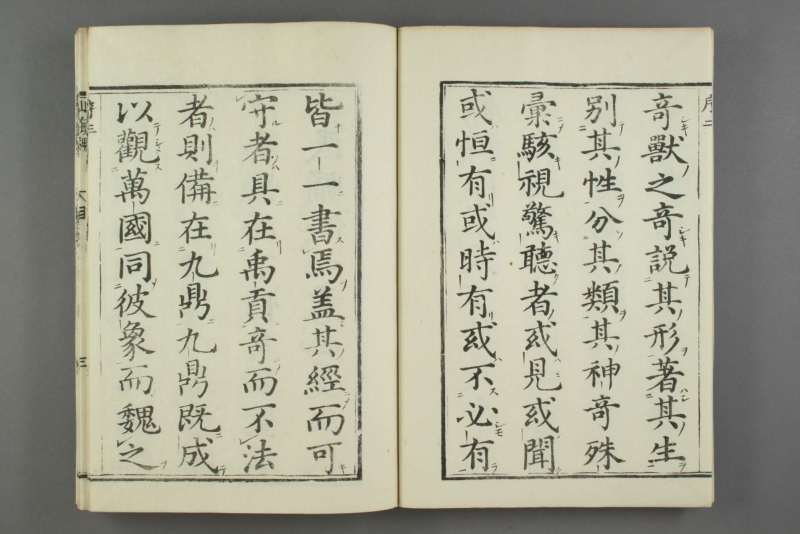 序二
奇獸之奇説其形著其生
別其性分其類其神奇殊
彙駭視驚聽者或見或聞
或恒有或時有或不必有
皆一一書焉盖其經而可
守者具在禹貢奇而不法
者則備在九鼎九鼎既成
以觀萬國同彼象而魏之
序三
三